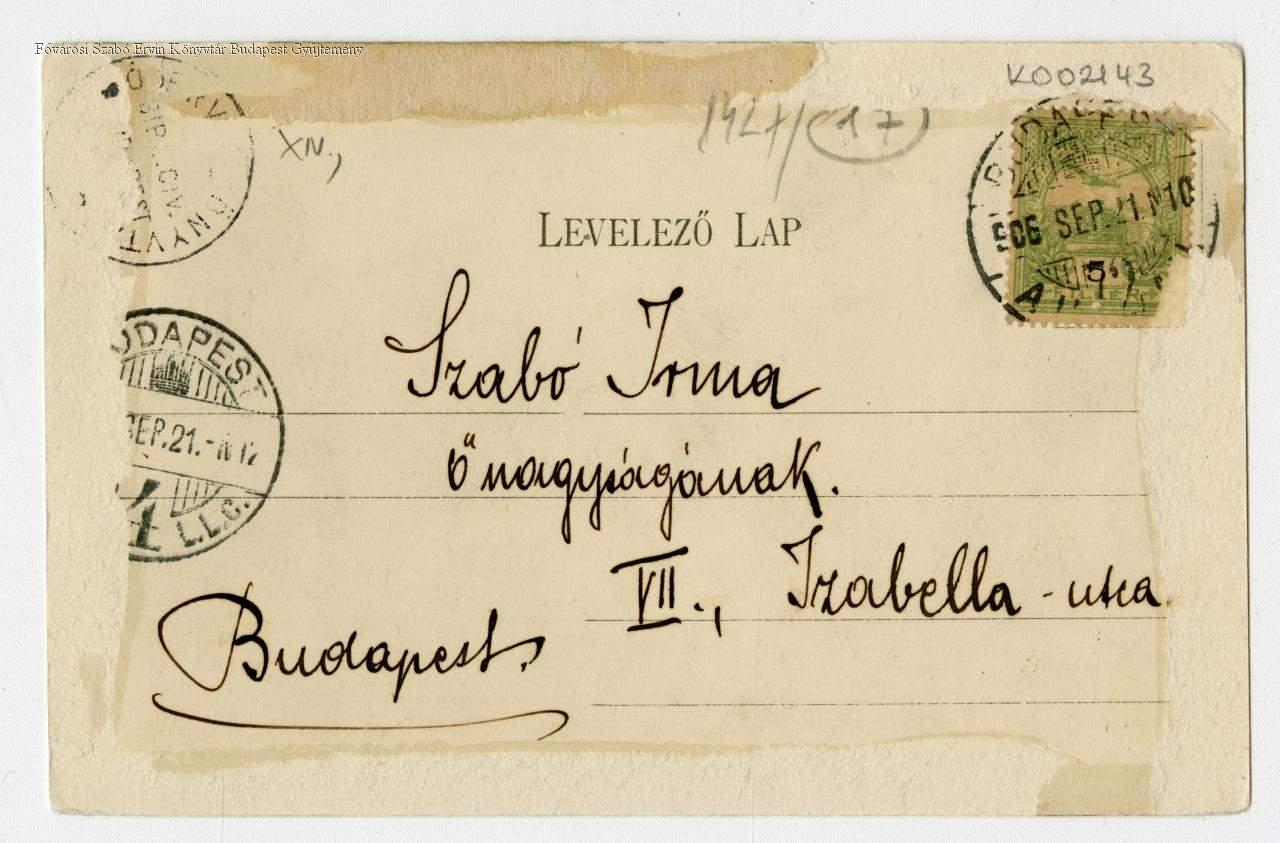 Fővárosi Szabó Ervin Könyvtár Budapest Gyűjtemény
K002143
1427/(17)
XN.,
BUDAPEST
906 SEP. 21. N10
5
FILLÉR
LEVELEZŐ LAP
Szabó Irma
őnagyságának.
VII., Izabella-utca
Budapest.
UDAPEST
SEP. 21.-N12
4
I.L.C.